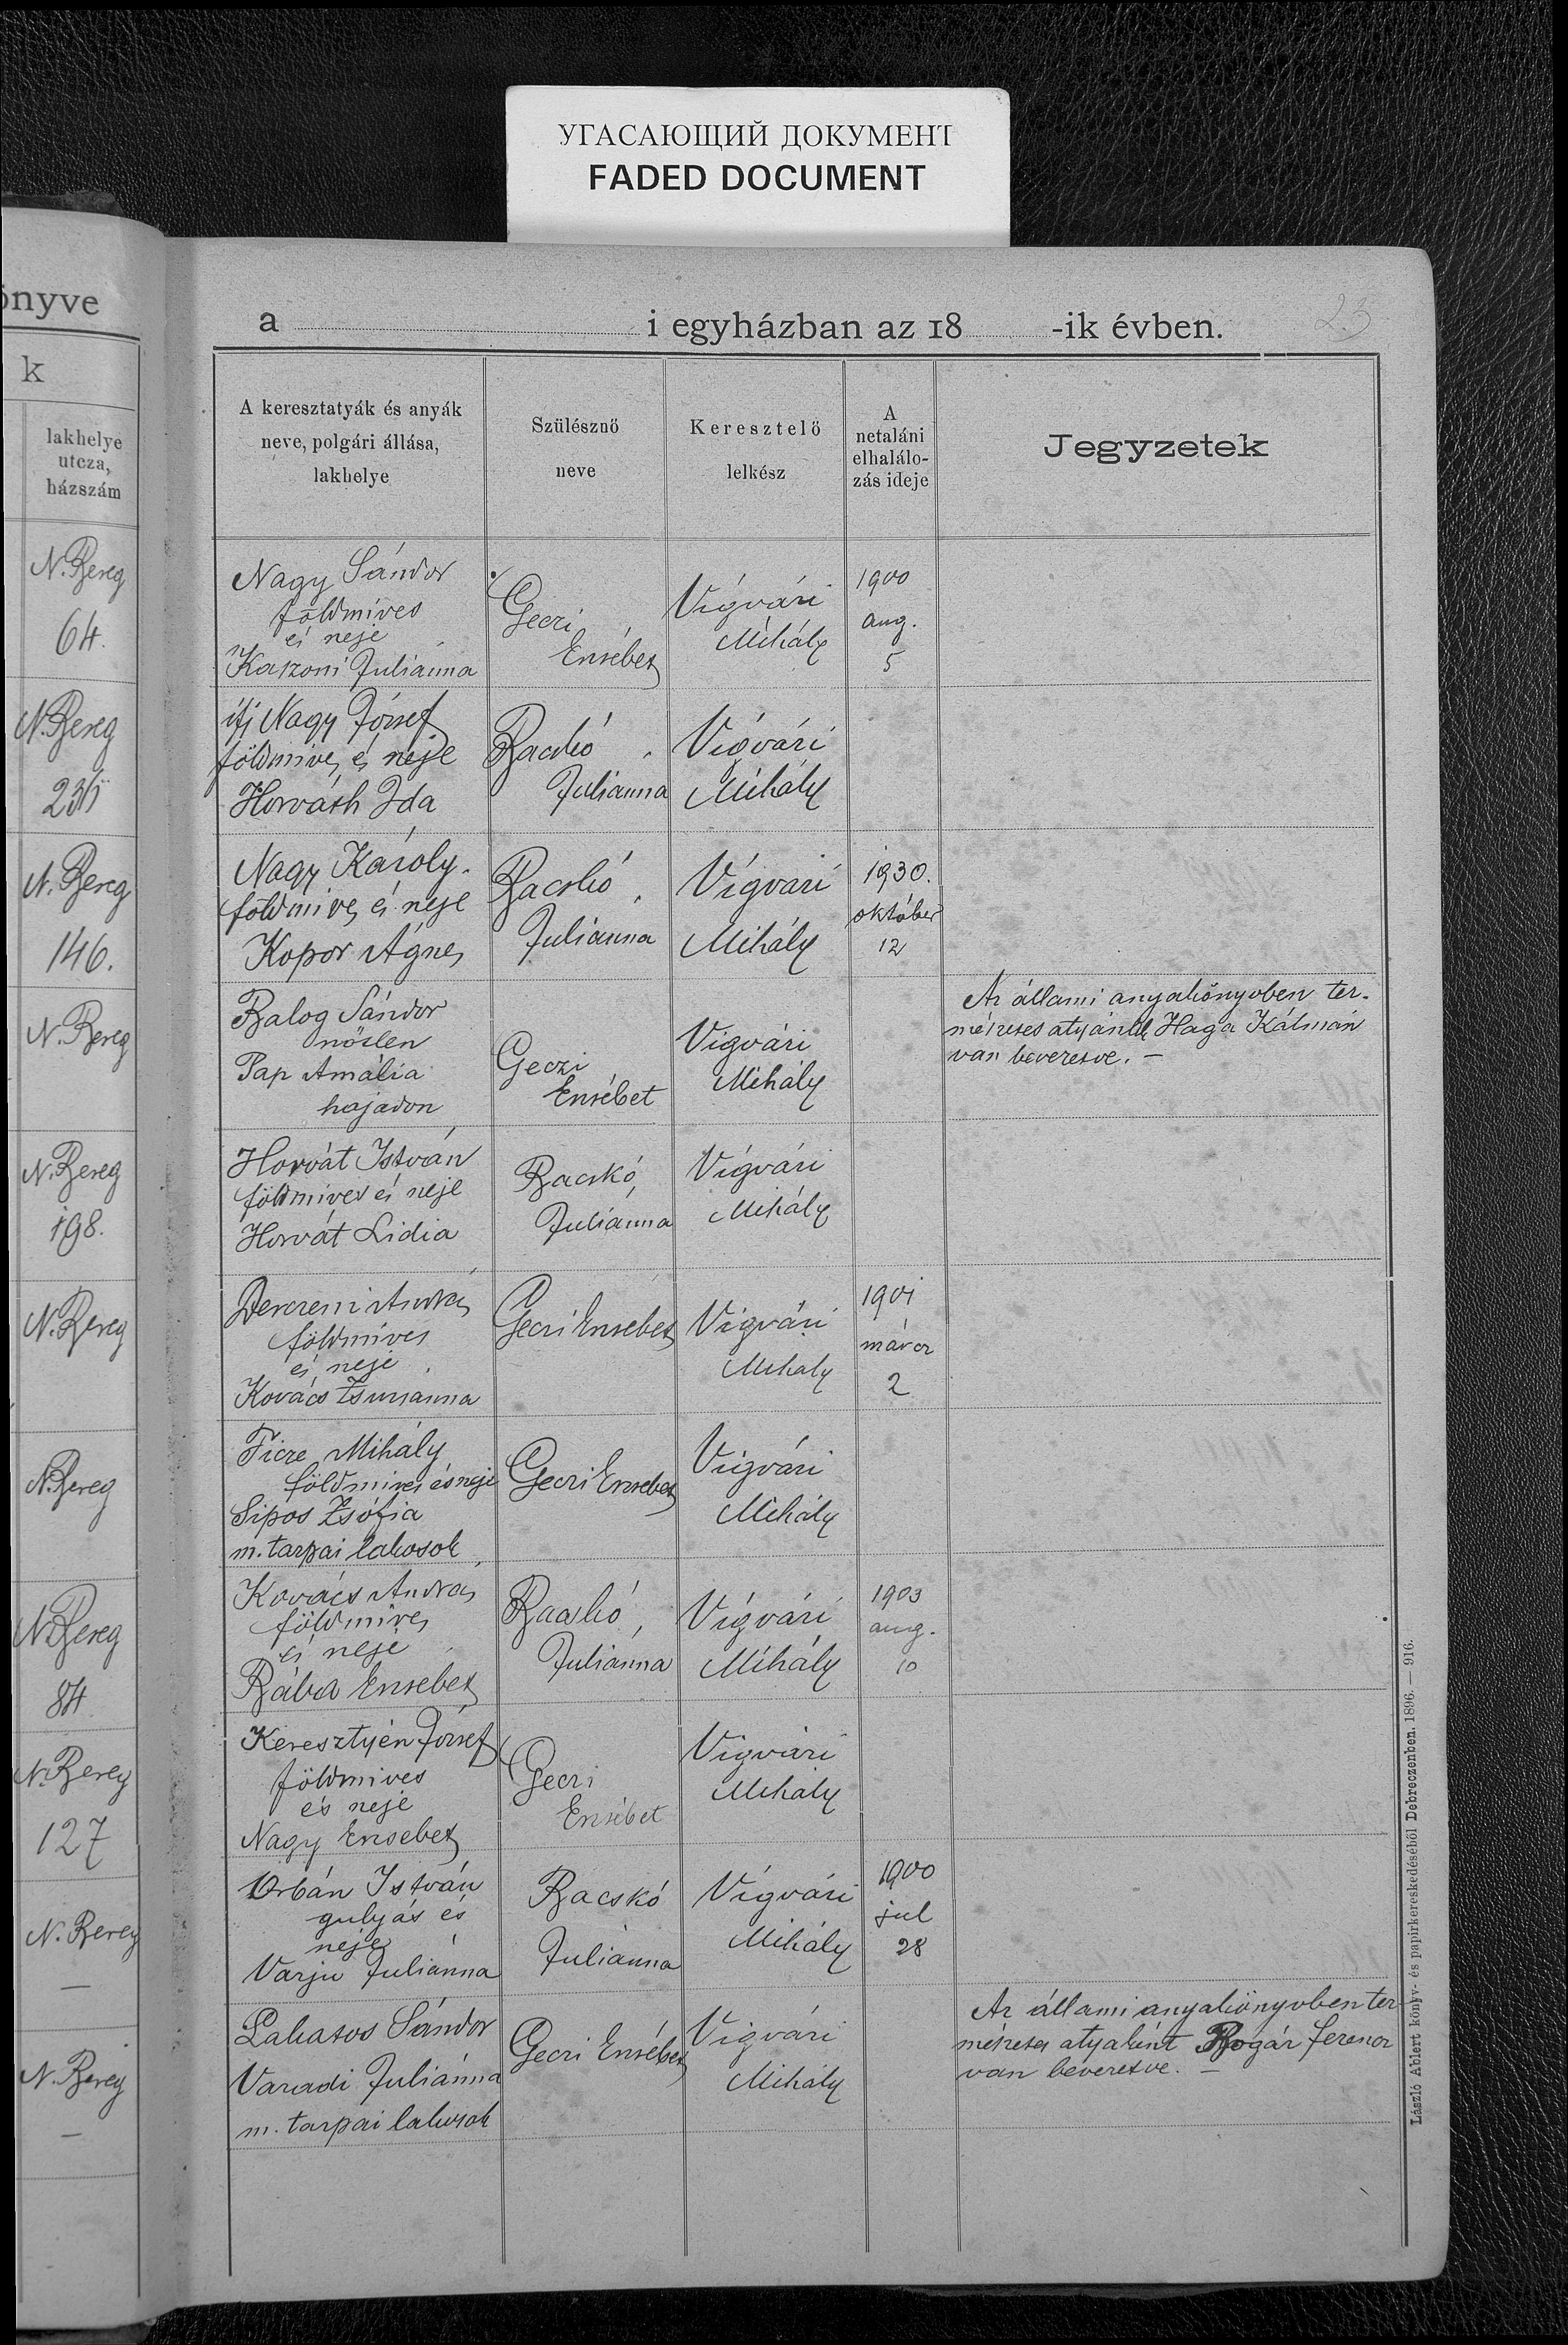 УГАСАЮЩИЙ ДОКУМЕНТ
FADED DOCUMENT
önyve
k
lakhelye
utcza,
házszám
N. Bereg
64.
N. Bereg
N. Bereg
146.
N. Bereg
N. Bereg
198.
N. Bereg
N. Bereg
N. Bereg
84
N. Bereg
127
N. Bereg
—
N. Bereg
—
a i egyházban az 18 -ik évben.
23
A keresztatyák és anyák
neve, polgári állása,
lakhelye
Szülésznő
neve
Keresztelő
lelkész
A
netaláni
elhalálo-
zás ideje
Jegyzetek
Nagy Sándor
földmíves
és neje
Kaszoni Juliánna
Geczi
Erzsébet
Vígvári
Mihály
1900
aug.
5
ifj Nagy József
földmives és neje
Horváth Ida
Bacskó
Juliánna
Vígvári
Mihály
Nagy Károly.
földmives és neje
Kopor Ágnes
Bacskó
Juliánna
Vígvári
Mihály
1930.
október
12
Balog Sándor
nőtlen
Pap Amália
hajadon
Geczi
Erzsébet
Vígvári
Mihály
Az állami anyakönyvben ter-
mészetes atyánúl Haga Kálmán
van bevezetve. —
Horvát István
földmíves és neje
Horvát Lidia
Bacskó
Juliánna
Vígvári
Mihály
Derczeni András
földmíves
és neje
Kovács Zsuzsanna
Geczi Erzsébet
Vígvári
Mihály
1901
márcz
2
Ficze Mihály
földmives és neje
Sipos Zsófia
m. tarpai lakosok
Geczi Erzsebet
Vígvári
Mihály
Kovács András
földmives
és neje
Bába Erzsebet
Bacskó
Juliánna
Vígvári
Mihály
1903
aug.
10
Keresztyén József
földmives
és neje
Nagy Erzsebet
Geczi
Erzsébet
Vígvári
Mihály
Orbán István
gulyás és
neje
Varju Juliánna
Bacskó
Juliánna
Vígvári
Mihály
1900
jul
28
Lakatos Sándor
Varadi Juliánna
m. tarpai lakosok
Geczi Erzsébet
Vígvári
Mihály
Az állami anyakönyvben ter-
mészetes atyaként Bogár Ferencz
van bevezetve. —
László Albert könyv- és papirkereskedéséből Debreczenben. 1896. — 916.